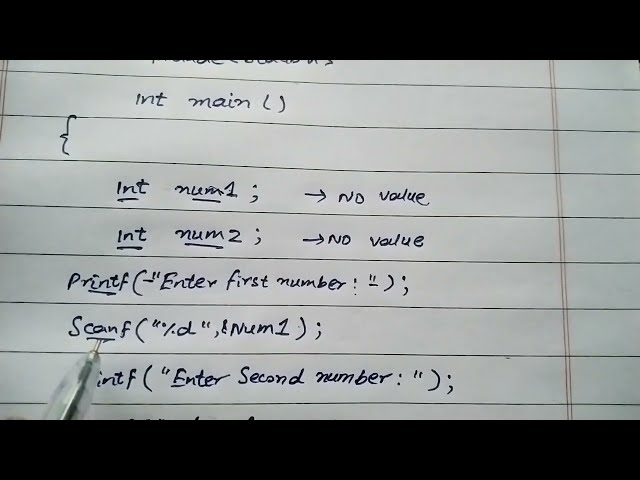 Int main ()
{
Int num1 ; → No value
Int num2 ; → No value
Printf(-"Enter first number : "-);
Scanf("%d",&Num1);
intf("Enter Second number : ");